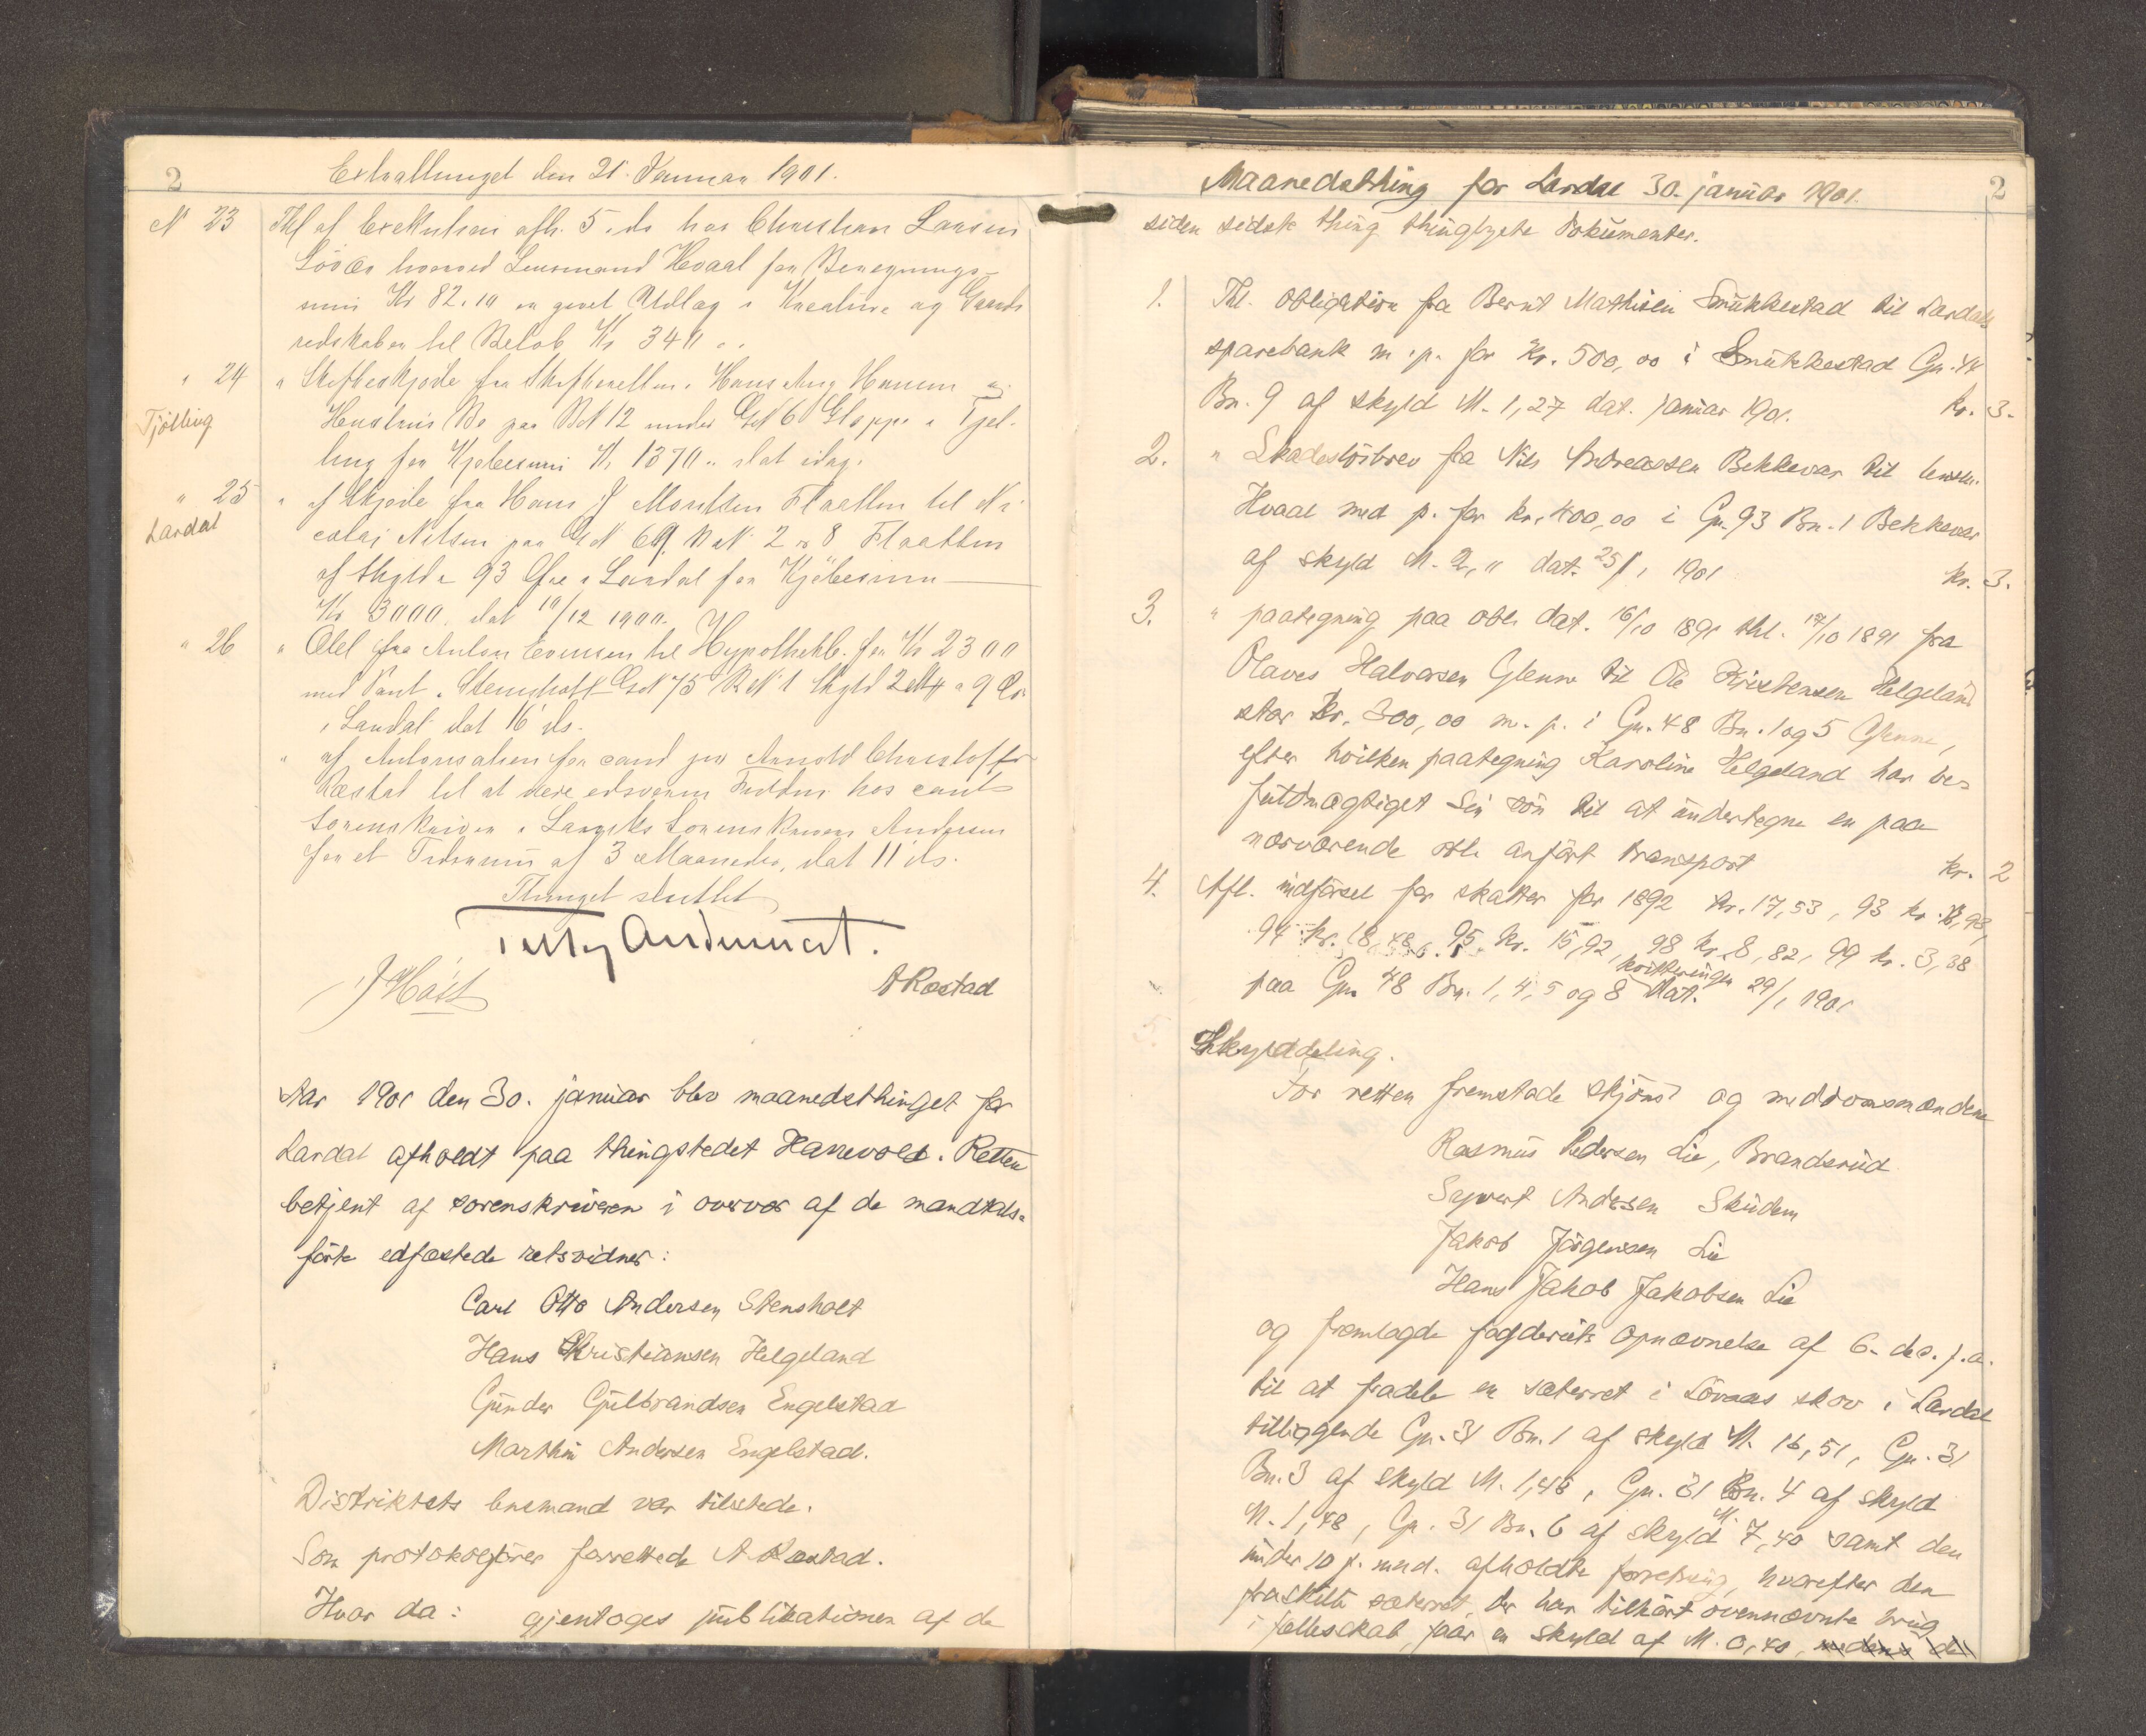 2
Extrathinget den 21. Januar 1901.
N 23
Thl af Exekution afh. 5. ds hos Christian Larsen
hvorved Lensmand Hvaal for Beregnings-
sum Kr 82.10 er givet Udlag i Kreature og Gaards
redskaber til Beløb Kr 340 ..
" 24
" Skifteskjøde fra Skifteretten i Hans Aug Hansen og
Tjølling
Hustrus Bo paa BN 12 under GN 6 Gloppe i Tjøl-
ling for Kjøbesum Kr 1370 .. dat idag.
" 25
" af Skjøde fra Hans J Moritsen Flaatten til Ni-
Lardal
colai Nilsen paa GN 69 BN. 2 og 8 Flaatten
af Skyld 93 Øre i Lardal for Kjøbesum
Kr 3000. dat 10/12 1900.
" 26
" Obl fra Anton Evensen til Hypothekb. for Kr 2300
med Pant i Stensholt GN 75 BN 1 Skyld 2 Mk 9 Ør
i Lardal dat 16 ds.
" af Autorisation for cand jur Arnold Christoffer
Ræstad til at være edsvoren Fuldm. hos const
Sorenskriver i Laurviks Sorenskriveri Andersen
for et Tidsrum af 3 Maaneder, dat 11 ds.
Thinget sluttet
Andersen cst.
J Høist
A Ræstad
Aar 1901 den 30. januar blev maanedsthinget for
Lardal afholdt paa thingstedet Hanevold. Retten
betjent af sorenskriveren i overvær af de mandtals-
førte edfæstede retsvidner:
Carl Otto Andersen Stensholt
Hans Kristiansen Helgeland
Gunder Gulbrandsen Engelstad
Marthin Andersen Engelstad.
Distriktets lensmand var tilstede.
Som protokolfører forrettede A Ræstad.
Hvor da: gjentoges publikationen af de
Maanedsthing for Lardal 30. januar 1901.
2
siden sidste thing thinglyste dokumenter.
1.
Thl. obligation fra Bernt Mathisen Smukkestad til Lardals
sparebank m. p. for Kr. 500,00 i Smukkestad Gn. 44
Bn. 9 af skyld M. 1,27 dat. januar 1901. kr. 3.
2.
" Skadesløsbrev fra Nils Andreassen Bekkevar til lensm.
Hvaal med p. for kr. 400,00 i Gn. 93 Bn. 1 Bekkevar
af skyld M. 2, " dat. 25/1 1901 kr. 3.
3.
" paategning paa obl. dat. 16/10 1891 thl. 17/10 1891 fra
Olaves Halvorsen Glenne til Ole Kristensen Helgeland
stor Kr. 300,00 m. p. i Gn. 48 Bn. 1 og 5 Glenne,
efter hvilken paategning Karoline Helgeland har be-
fuldmægtiget sin søn til at undertegne en paa
nærværende obl. anført transport kr. 2
4.
Afl. indførsel for skatter for 1892 kr. 17,53, 93 kr. 8,98,
94 kr. 18,48, 95. kr. 15,92, 98 kr. 8,82, 99 kr. 3,38
paa Gn. 48 Bn. 1, 4, 5 og 8 kvitteringen dat. 29/1 1901
Skylddeling.
For retten fremstode skjøns og meddomsmændene
Rasmus Pedersen Lie, Brandsrud
Syvert Andersen Skudem
Jakob Jørgensen Lie
Hans Jakob Jakobsen Lie
og fremlagde fogderiets opnævnelse af 6. des. f. a.
til at fradele en sæterret i Løvaas skov i Lardal
tilliggende Gn. 31 Bn. 1 af skyld M. 16,51, Gn. 31
Bn. 3 af skyld M. 1,48, Gn. 31 Bn. 4 af skyld
M. 1,48, Gn. 31 Bn. 6 af skyld M. 7,40 samt den
under 10 f. mnd. afholdte forretning, hvorefter den
fraskilte sæterret, der har tilhørt ovennævnte brug
i fællesskab, faar en skyld af M. 0,40,